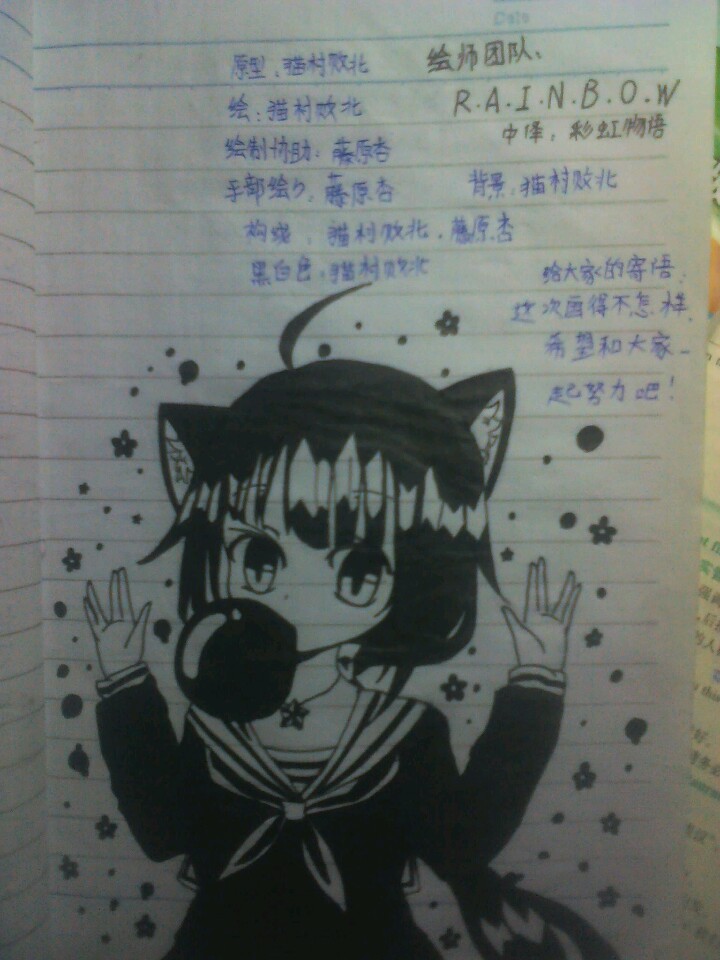 Date
原型：猫村败北
绘师团队：
绘：猫村败北
R.A.I.N.B.O.W
中译：彩虹物语
绘制协助：藤原杏
手部绘り：藤原杏
背景：猫村败北
构成：猫村败北．藤原杏
黑白色：猫村败北
给大家的寄语：
这次画得不怎样，
希望和大家一
起努力吧！